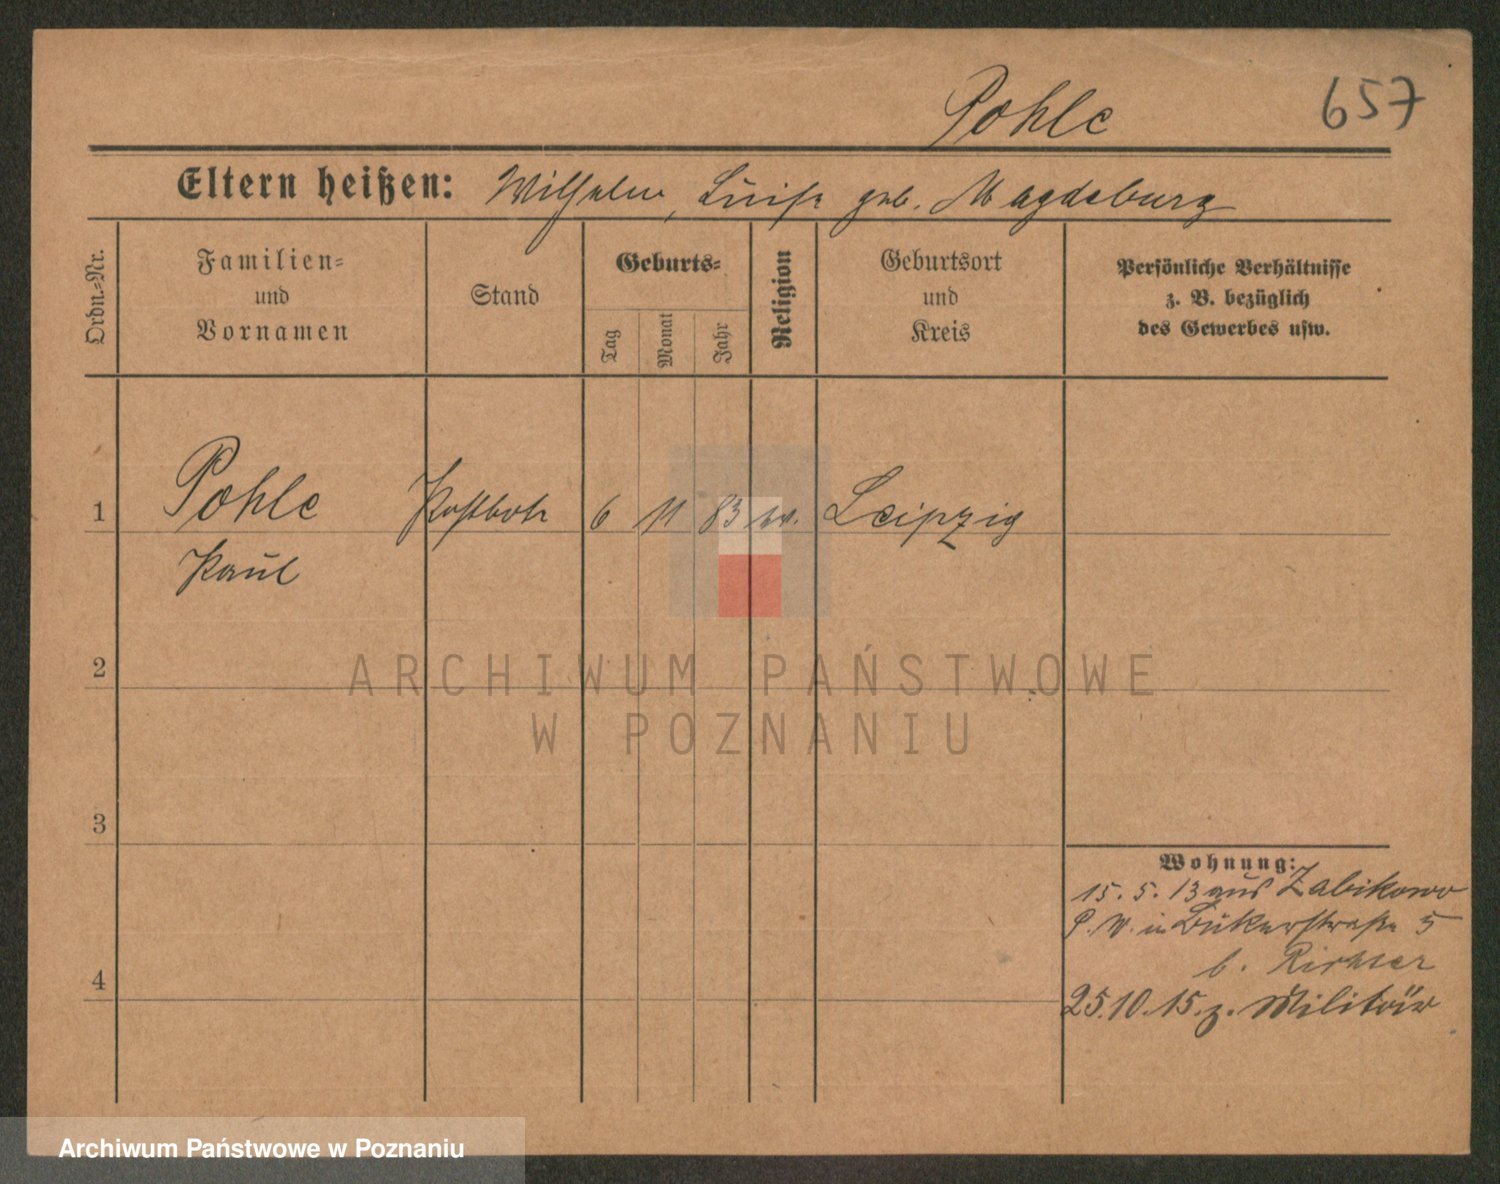 Pohle 657
Eltern heißen: Wilhelm, Luise geb. Magdeburg
Ordn.-Nr.
Familien-
und
Vornamen
Stand
Geburts-
Tag
Monat
Jahr
Religion
Geburtsort
und
Kreis
Persönliche Verhältnisse
z. B. bezüglich
des Gewerbes usw.
1 Pohle Postbote 6 11 83 ev. Leipzig
Paul
2
ARCHIWUM PAŃSTWOWE
W POZNANIU
3
Wohnung:
15. 5. 13 aus Zabikowo
P. W. in 5
b. Richter
4
25.10.15. z. Militär
Archiwum Państwowe w Poznaniu